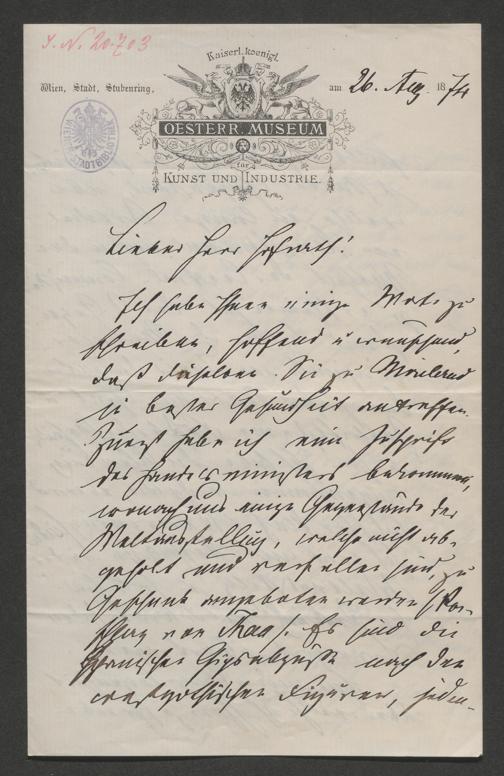 J. N. 20.703
Kaiserl. koenigl.
Wien, Stadt, Stubenring,
am 26. Aug. 1874
OESTERR. MUSEUM
für
KUNST UND INDUSTRIE.
Lieber Herr Hofrath!
Ich habe Ihnen einige Worte zu
schreiben, hoffend u wünschend,
daß dieselben Sie zu Mailand
in bester Gesundheit antreffen.
Zuerst habe ich eine Zuschrift
des Handelsministers bekommen,
wonach uns einige Gegenstände der
Weltausstellung, welche nicht ab-
geholt und verfallen sind, zu
Geschenk angeboten werden
von Es sind die
spanischen Gipsabgüsse nach den
westgothischen Figuren, jeden-